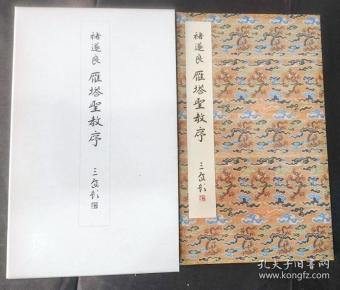 褚遂良 雁塔聖教序
褚遂良 雁塔聖教序
孔夫子旧书网
www.kongfz.com